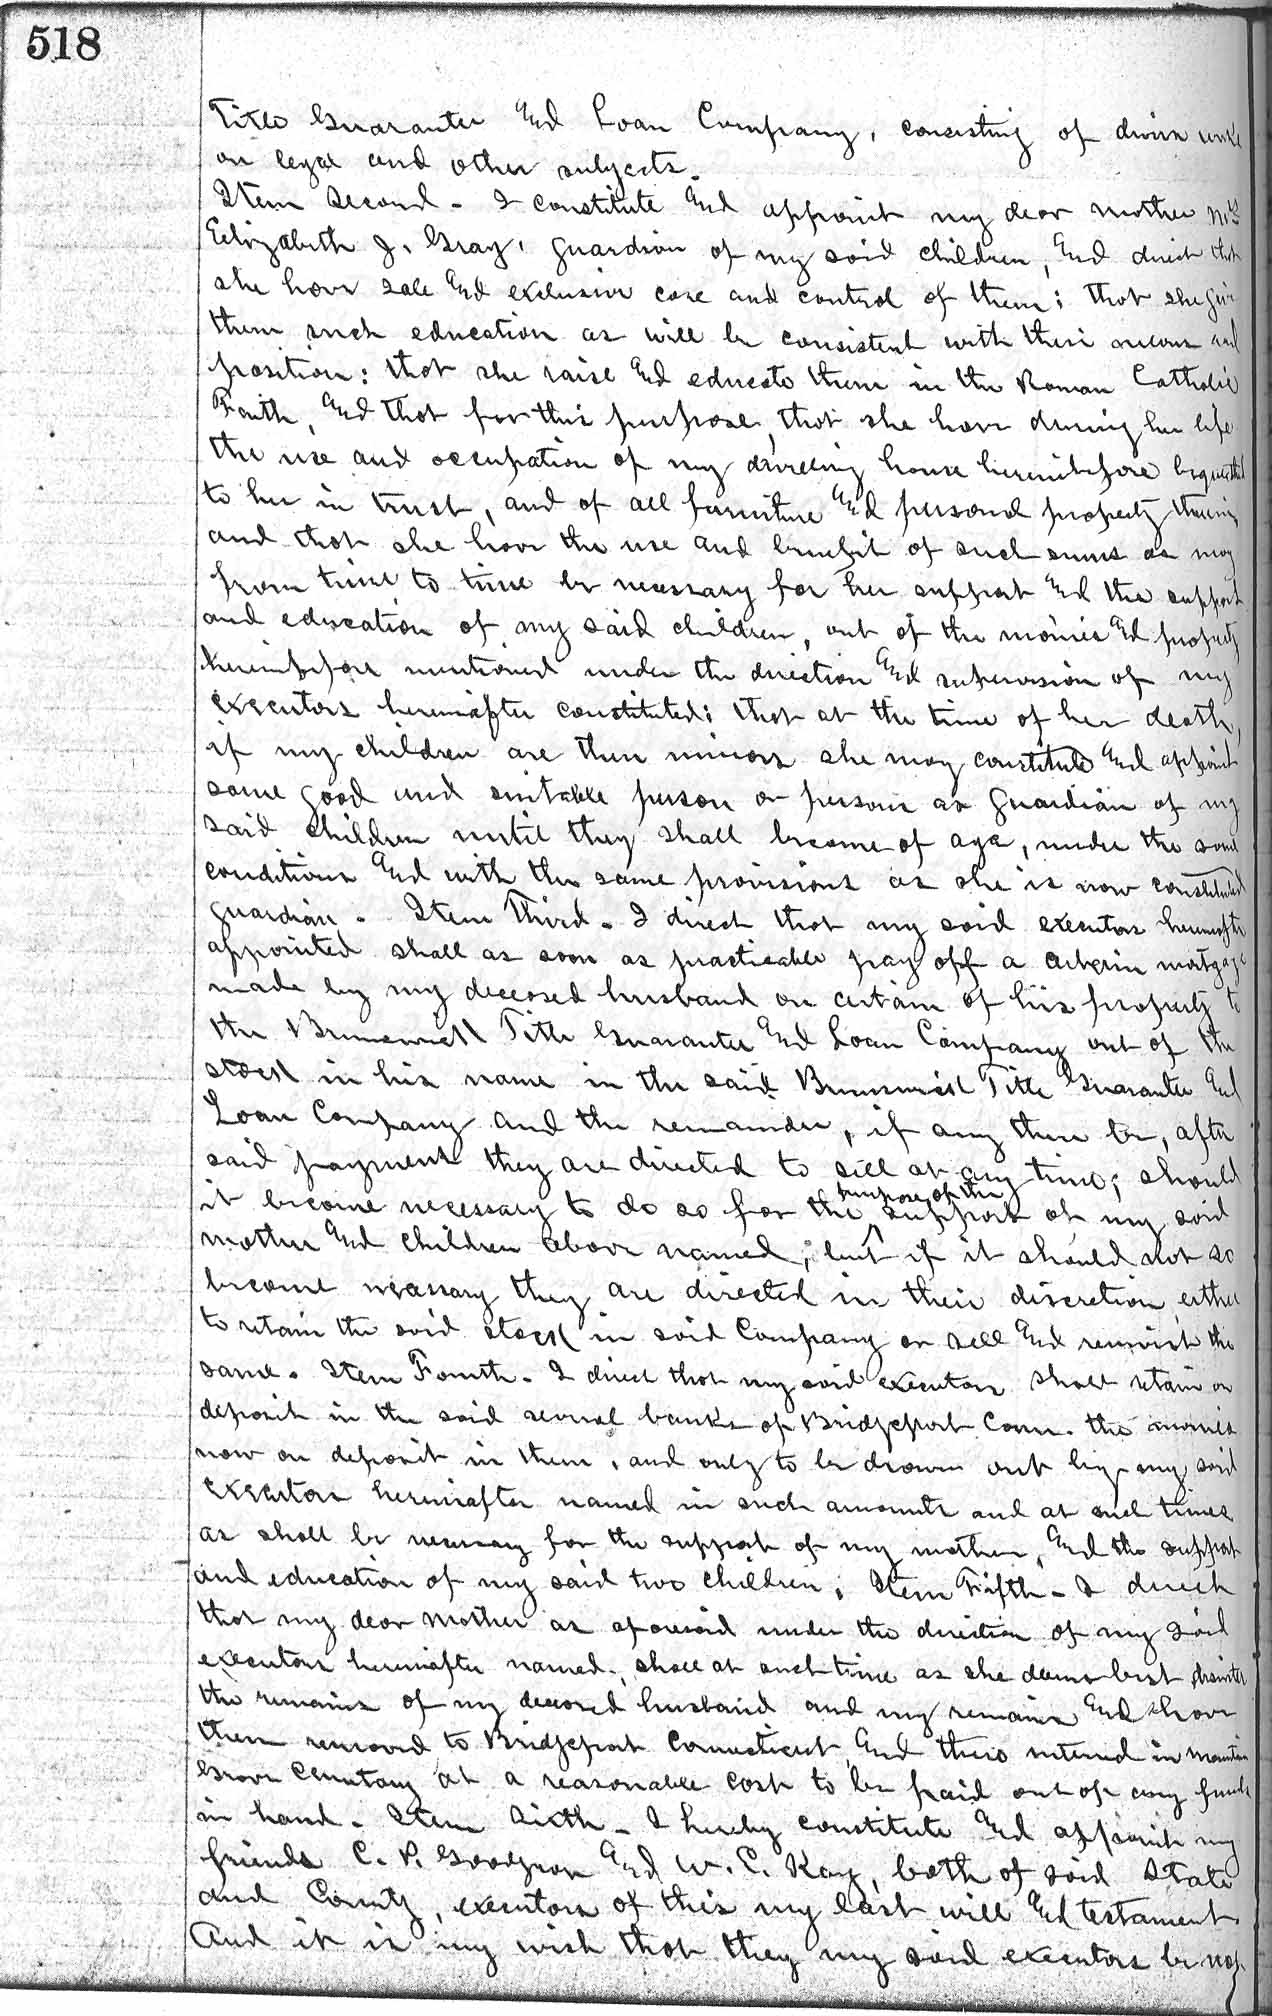 518
Title Guarantee and Loan Company, consisting of divers works
on legal and other subjects.
Item Second - I constitute and appoint my dear mother Mrs
Elizabeth J. Gray, guardian of my said children, and direct that
she have sole and exclusive care and control of them; that she give
them such education as will be consistent with their means and
position: that she raise and educate them in the Roman Catholic
Faith, and that for this purpose, that she have during her life
the use and occupation of my dwelling house hereinbefore bequeathed
to her in trust, and of all furniture and personal property therein,
and that she have the use and benefit of such sums as may
from time to time be necessary for her support and the support
and education of my said children, out of the monies and property
hereinbefore mentioned under the direction and supervision of my
executors hereinafter constituted; that at the time of her death,
if my children are then minors she may constitute and appoint
some good and suitable person or persons as guardian of my
said children until they shall become of age, under the same
conditions and with the same provisions as she is now constituted
guardian. Item Third. I direct that my said executors hereinafter
appointed shall as soon as practicable pay off a certain mortgage
made by my deceased husband on certain of his property to
the Brunswick Title Guarantee and Loan Company out of the
stock in his name in the said Brunswick Title Guarantee and
Loan Company and the remainder, if any there be, after
said payment they are directed to sell at any time, should
it become necessary to do so for the purpose of the support of my said
mother and children above named, but if it should not so
become necessary they are directed in their discretion either
to retain the said stock in said Company or sell and reinvest the
same. Item Fourth. I direct that my said executors shall retain on
deposit in the said several banks of Bridgeport Conn. the monies
now on deposit in them, and only to be drawn out by my said
executors hereinafter named in such amounts and at such times
as shall be necessary for the support of my mother, and the support
and education of my said two children; Item Fifth - I direct
that my dear mother as aforesaid under the direction of my said
executors hereinafter named, shall at such time as she deems best disinter
the remains of my deceased husband and my remains and have
them removed to Bridgeport Connecticut and there interred in Mountain
Grove Cemetary at a reasonable cost to be paid out of any funds
in hand. Item Sixth - I hereby constitute and appoint my
friends C. P. Goodyear and W. E. Kay, both of said State
and County, executors of this my last will and testament
And it is my wish that they my said executors be not